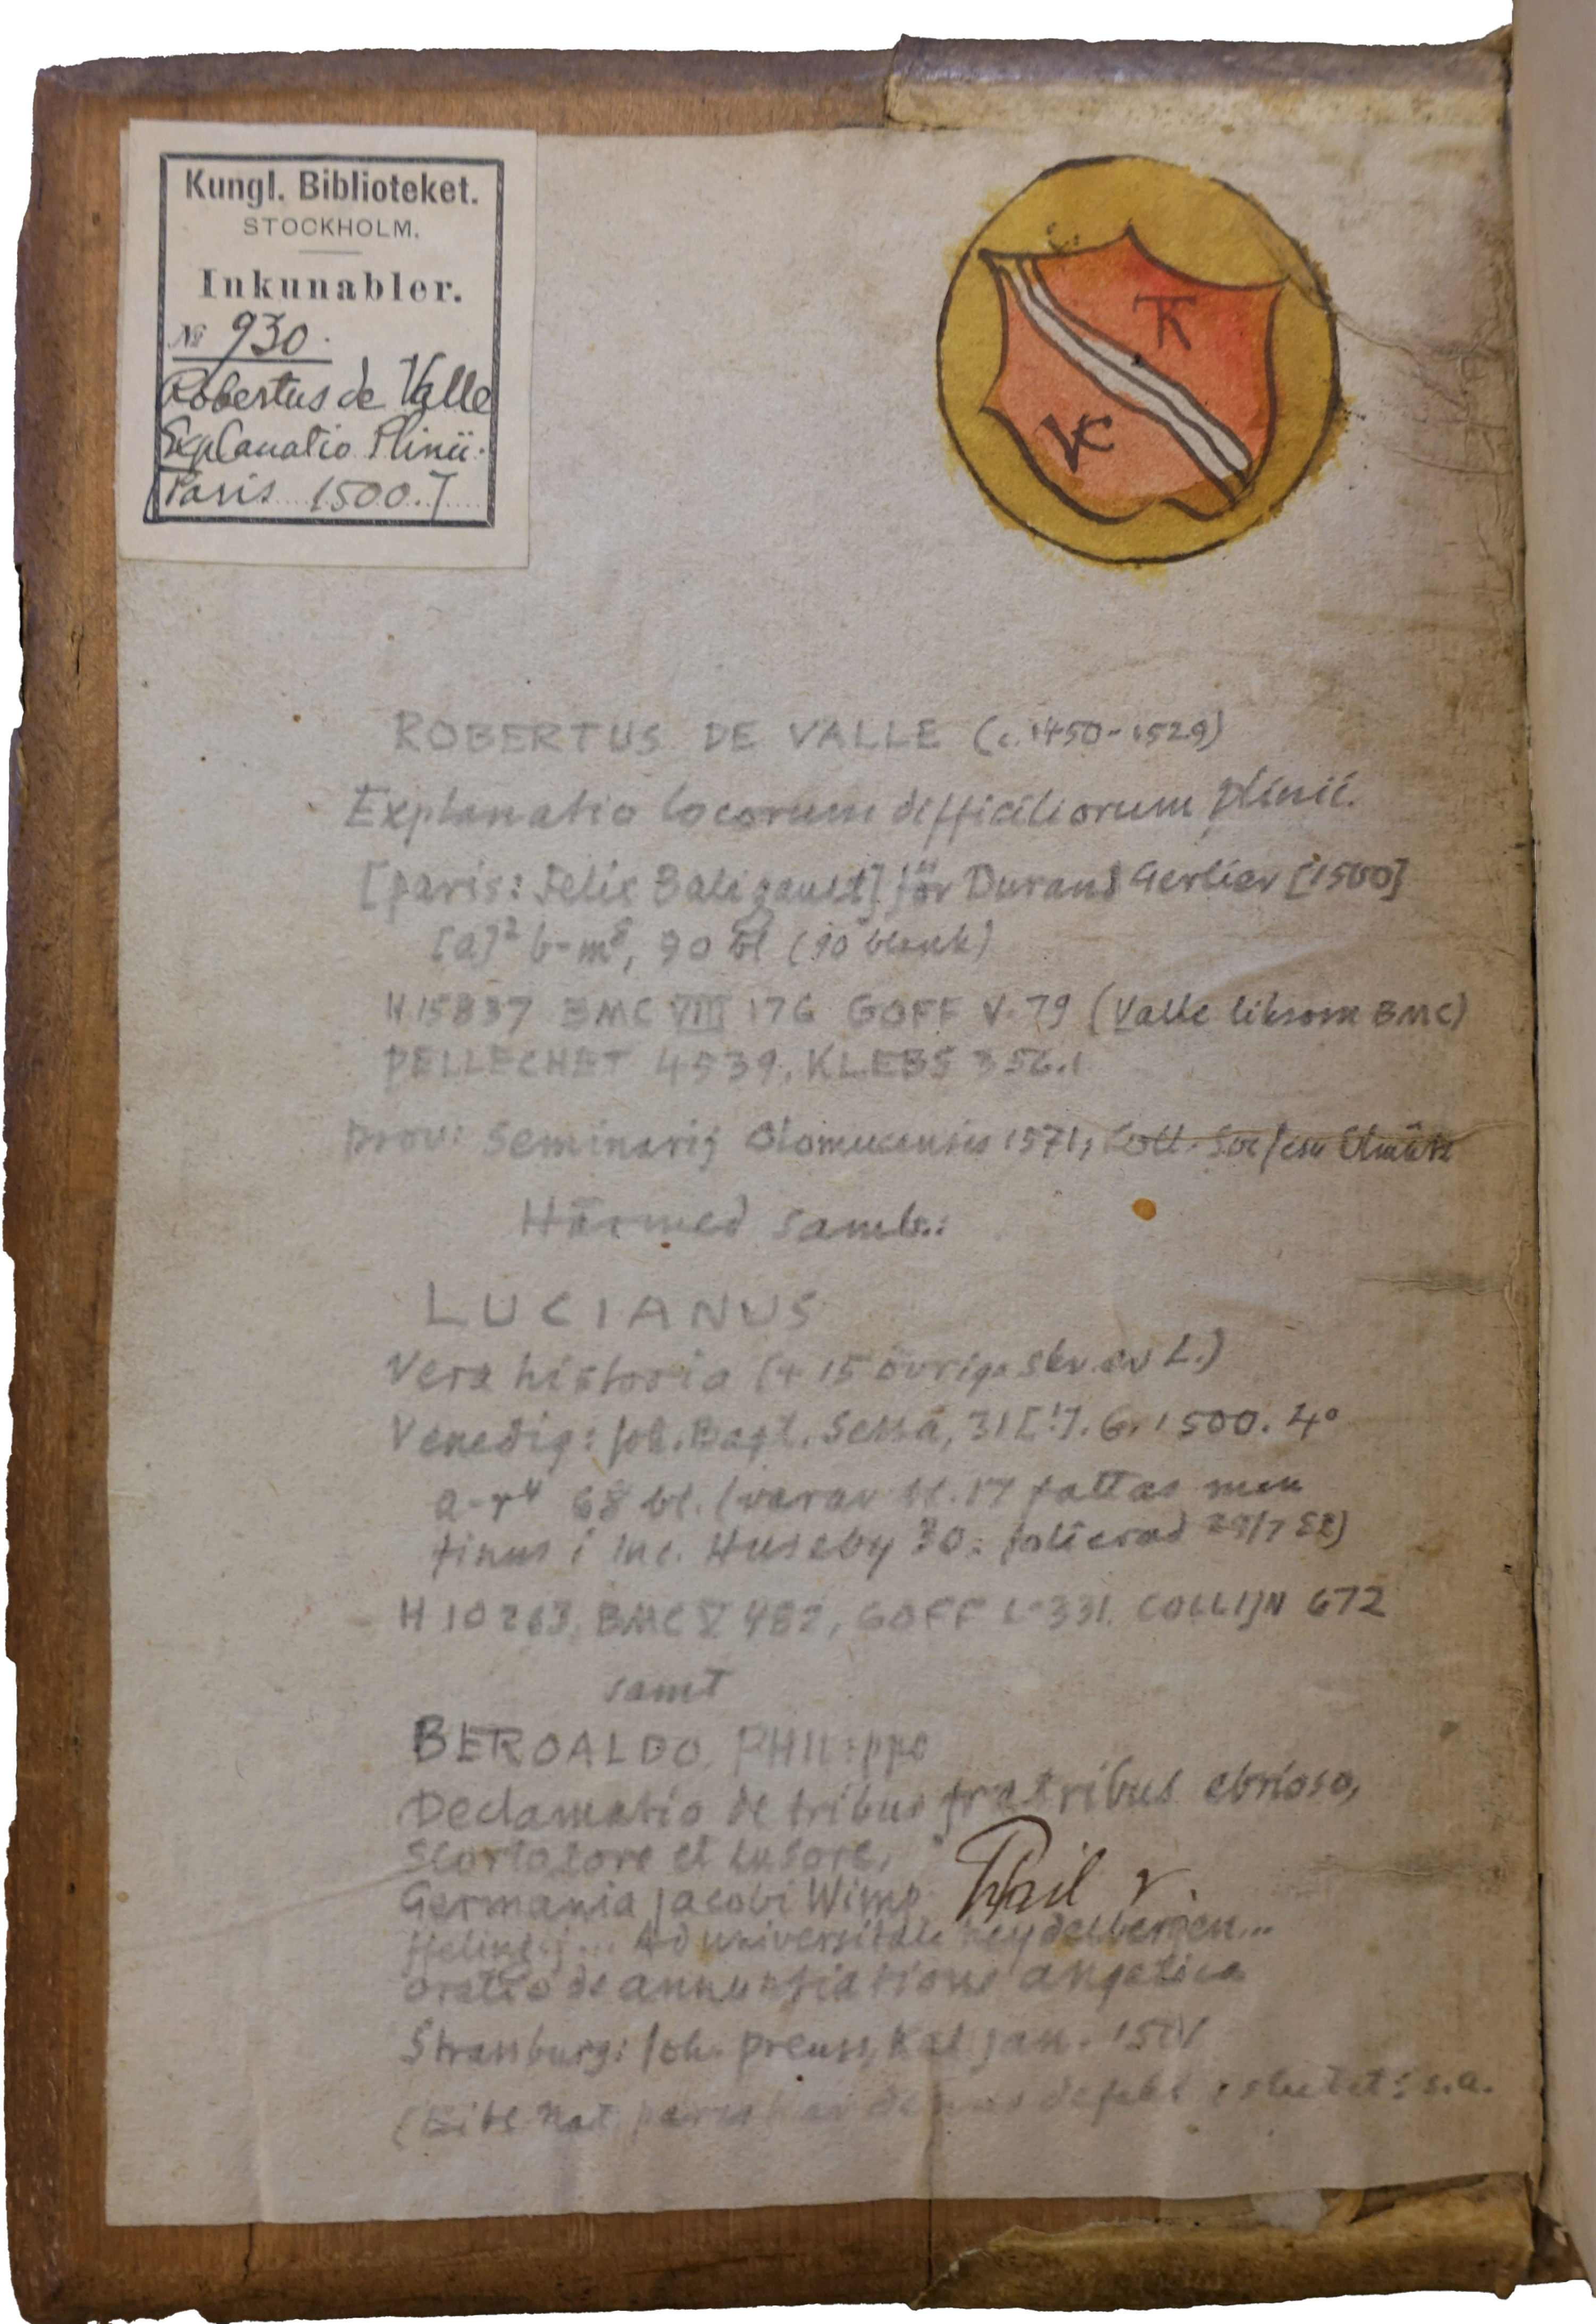 Kungl. Biblioteket.
STOCKHOLM.
Inkunabler.
№ 930.
Robertus de Valle
Explanatio Plinii.
Paris 1500.]
TK
VC
ROBERTUS DE VALLE (c. 1450-1529)
Explanatio locorum difficiliorum Plinii.
[Paris: Felix Baligault] för Durand Gerlier [1500]
[a]² b-m⁸, 90 bl (90 blank)
H 15837 BMC VIII 176 GOFF V-79 (Valle liksom BMC)
PELLECHET 4539, KLEBS 356.1
Prov: Seminarij Olomucensis 1571, Coll. Soc Jesu Olmütz
Härmed samb.:
LUCIANUS
Vera historia (+ 15 övriga skr. av L.)
Venedig: Joh. Bapt. Sessa, 31[!]. 6. 1500. 4°
a-r⁴ 68 bl. (varav bl. 17 fattas men
finns i Inc. Huseby 30: folierad 29/7 82)
H 10263, BMC V 482, GOFF L-331. COLLIJN 672
samt
BEROALDO, PHILippo
Declamatio de tribus fratribus ebrioso,
scortatore et lusore,
Germania Jacobi Wimp
ffelingij... Ad universitatē heydelbergen...
oratio de annuntiatione angelica
Strassburg: Joh. Preuss, Kal. Jan. 1501
(Bibl. Nat. Paris har defekt i slutet: s.a.